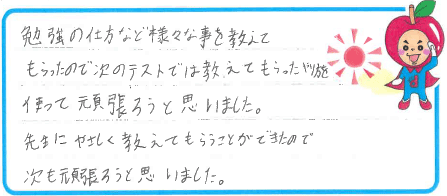 勉強の仕方など様々な事を教えて
もらったので次のテストでは教えてもらったやり方を
使って頑張ろうと思いました。
先生にやさしく教えてもらうことができたので
次も頑張ろうと思いました。